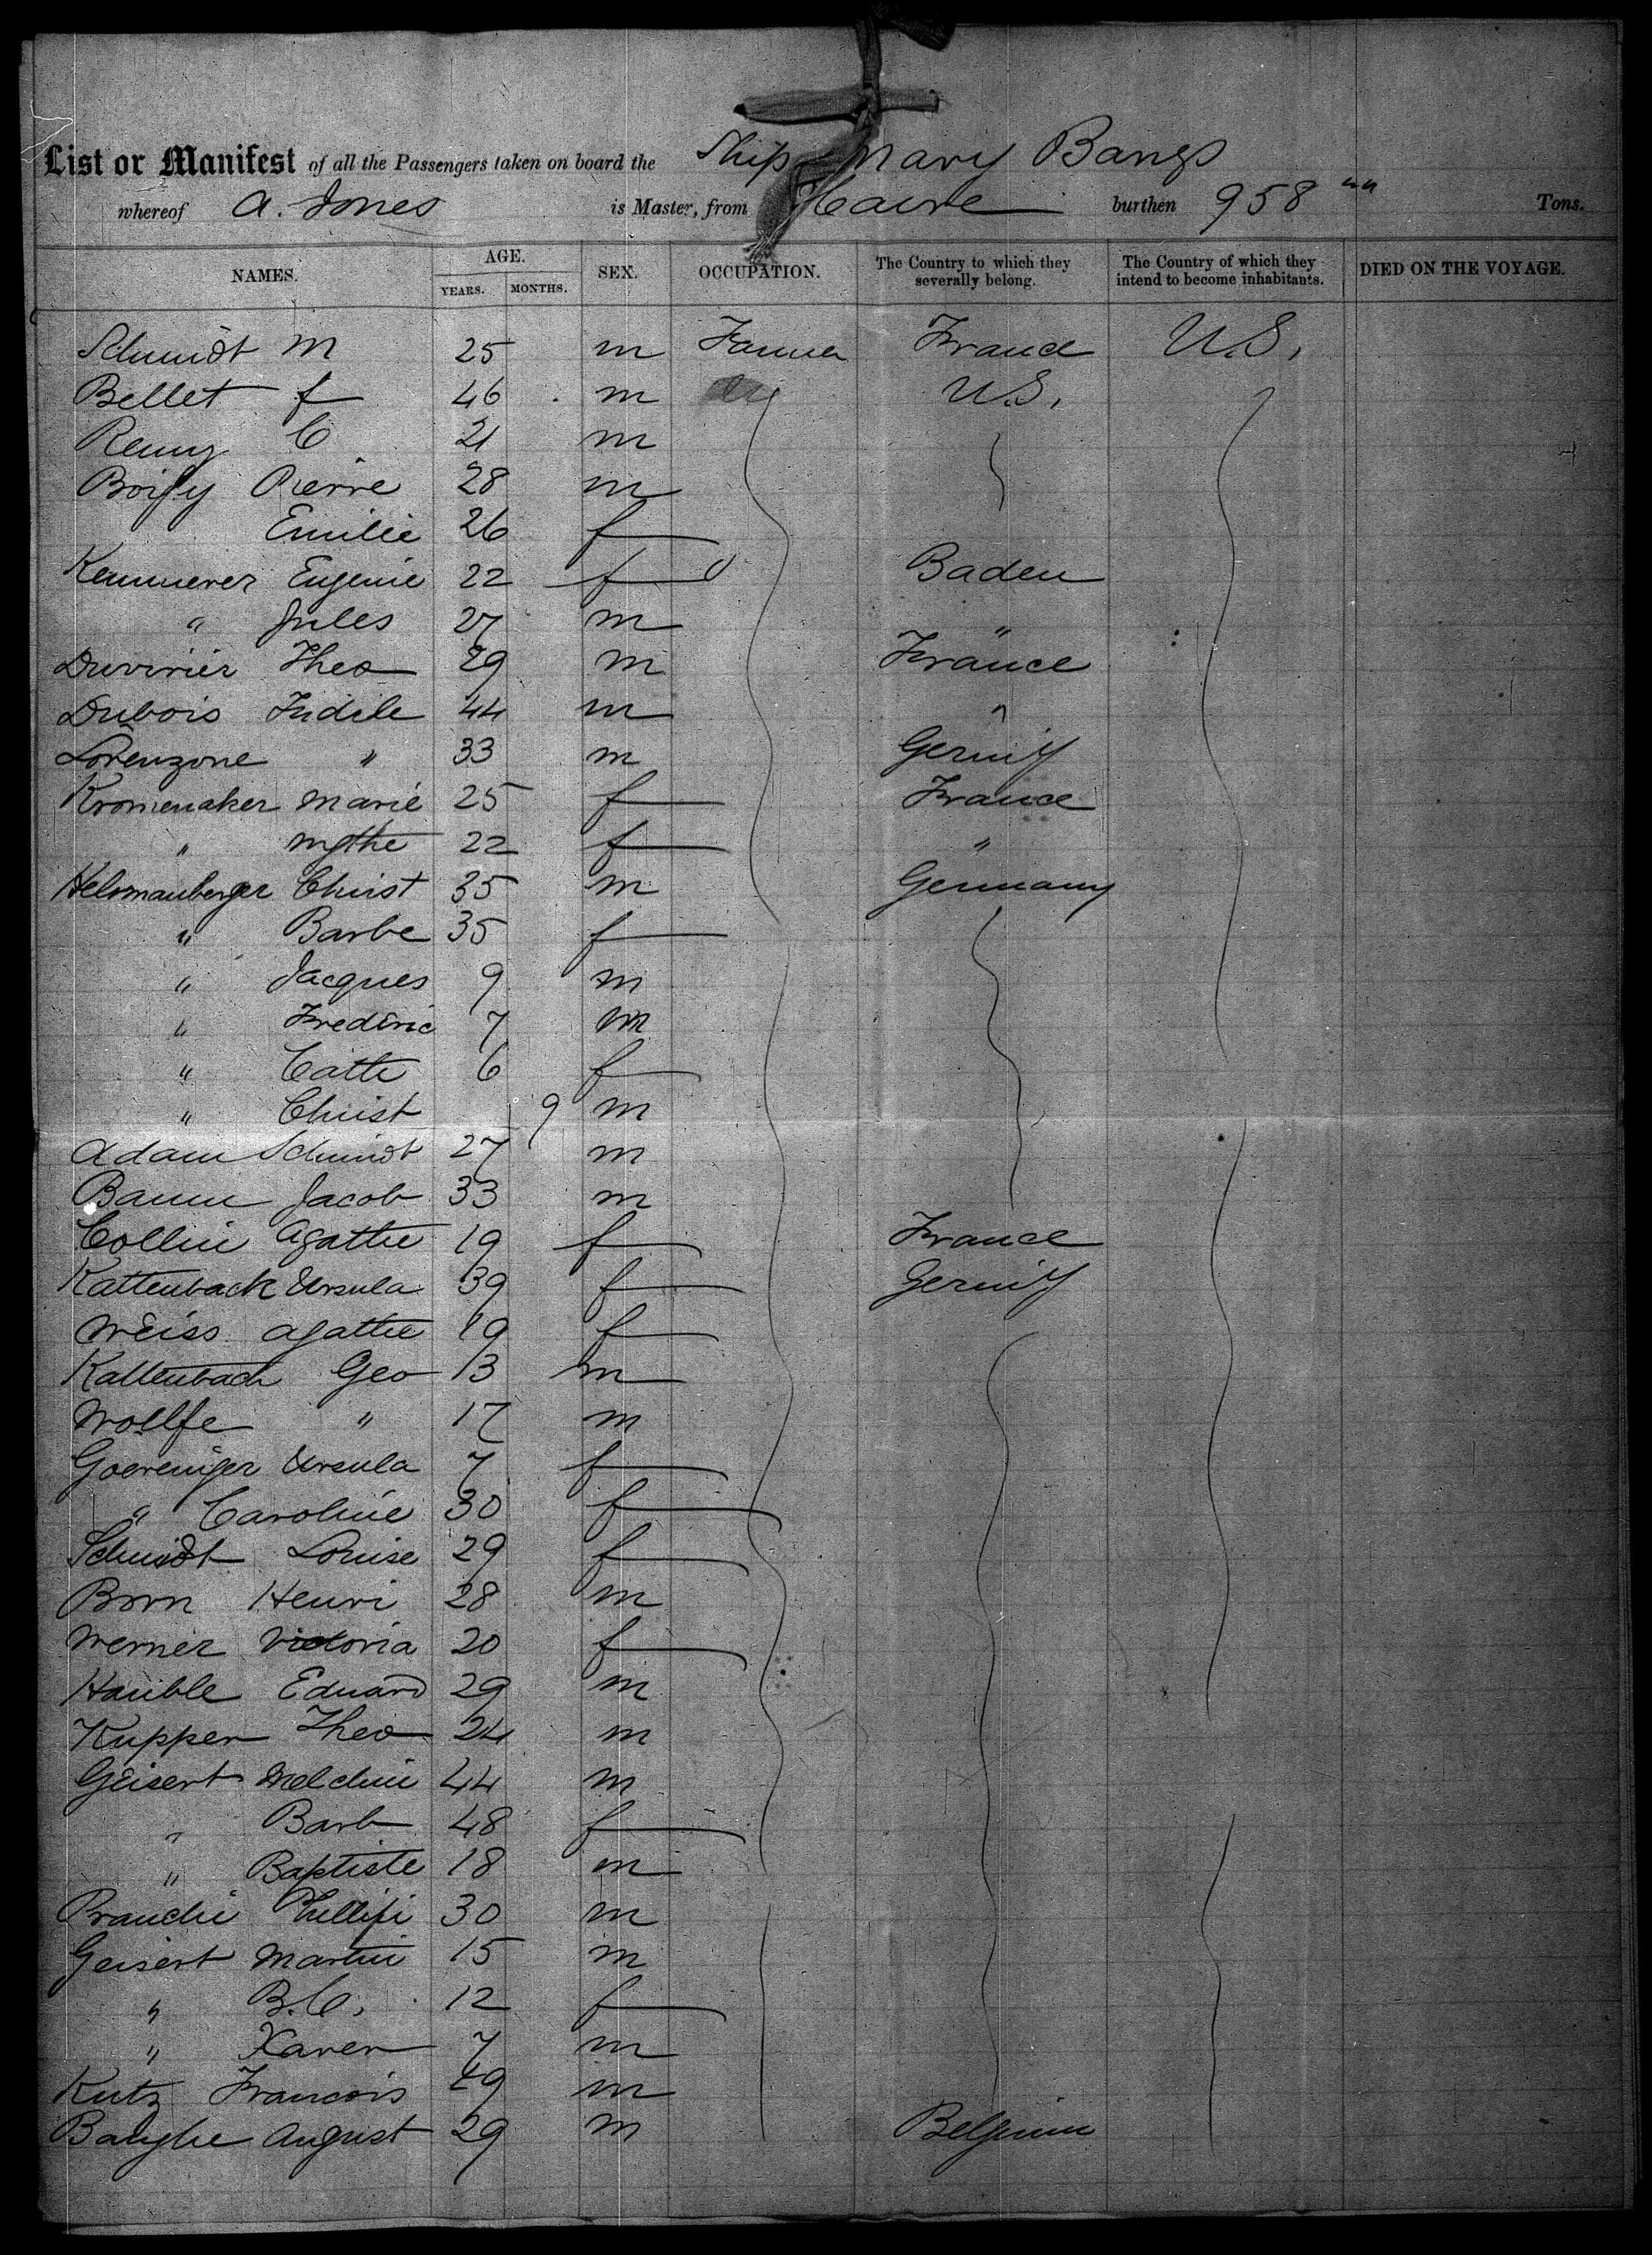 List or Manifest of all the Passengers taken on board the Ship Mary Bangs
whereof A. Jones is Master, from Havre burthen 958 "" Tons.
NAMES. AGE. YEARS. MONTHS. SEX. OCCUPATION. The Country to which they severally belong. The Country of which they intend to become inhabitants. DIED ON THE VOYAGE.
Schmidt M 25 m Farmer France U.S.
Bellet f 46 m U.S.
Remy C 21 m
Pierre 28 m
Emilie 26 f
Kemmerer Eugenie 22 f Baden
" Jules 27 m "
Duvivier Theo 29 m France
Dubois Fidele 44 m "
Lorenzone " 33 m Germy
Kromenaker Marie 25 f France
" Mgthe 22 f "
Helsmanberger Christ 35 m Germany
" Barbe 35 f
" Jacques 9 m
" Frederic 7 m
" Cath 6 f
" Christ 9 m
Adam Schmidt 27 m
Baum Jacob 33 m
Collin Agathe 19 f France
Kattenback Ursula 39 f Germy
Weiss Agathe 19 f
Kattenbach Geo 13 m
Wollfe " 17 m
Goereniger Ursula 7 f
" Caroline 30 f
Schmidt Louise 29 f
Born Henri 28 m
Werner Victoria 20 f
Hauble Eduard 29 m
Kupper Theo 24 m
Geisert Melchior 44 m
" Barb 48 f
" Baptiste 18 m
Phillipi 30 m
Geisert Martin 15 m
" B.C. 12 f
" Xaver 7 m
Kutz Francois 49 m
August 29 m Belgium